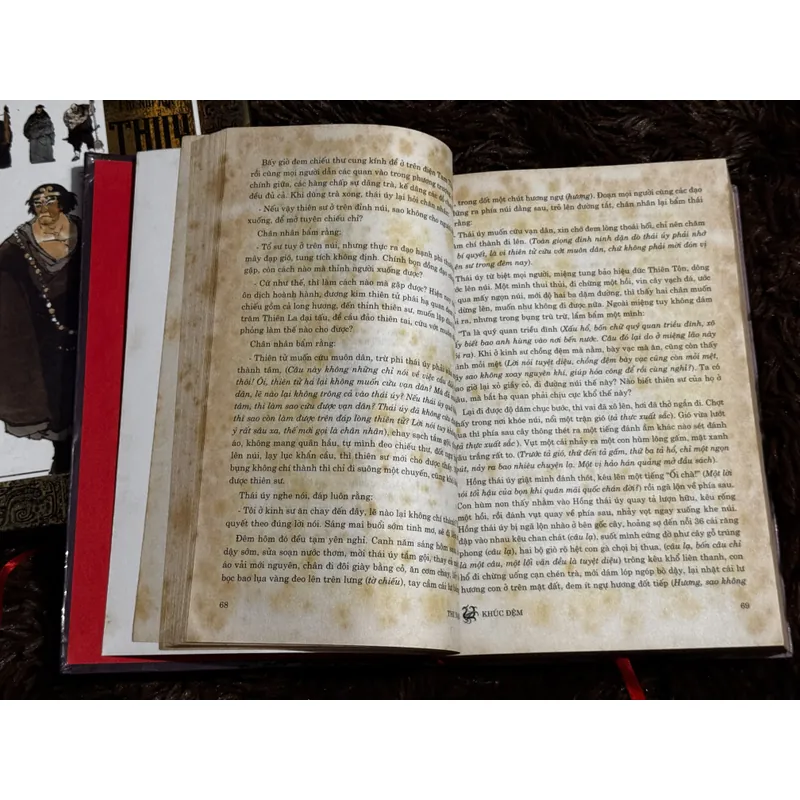 THỦY
Bấy giờ đem chiếu thư cung kính để ở trên điện Tam
rồi cùng mọi người dẫn các quan vào trong phương trượng
chính giữa, các hàng chấp sự dâng trà, kế dâng các đồ
đều đủ cả. Khi dùng trà xong, thái úy lại hỏi chân nhân
- Nếu vậy thiên sư ở trên đỉnh núi, sao không cho người
xuống, để mở tuyên chiếu chỉ?
Chân nhân bẩm rằng:
- Tổ sư tuy ở trên núi, nhưng thực ra đạo hạnh phi thường
mây đạp gió, tung tích không định. Chính bọn đồng đạo
gặp, còn cách nào mà thỉnh người xuống được?
- Cứ như thế, thì làm cách nào mà gặp được? Hiện nay
ôn dịch hoành hành, đương kim thiên tử phải hạ quan đem
chiếu gồm cả long hương, đến thỉnh thiên sư, muốn lập đàn
trăm Thiên La đại tấu, để cầu đảo thiên tai, cứu với muôn
phỏng làm thế nào cho được?
Chân nhân bẩm rằng:
- Thiên tử muốn cứu muôn dân, trừ phi thái úy phải
thành tâm, (Câu này không những chỉ nói về việc cầu đảo
thôi! Ôi, thiên tử há lại không muốn cứu vạn dân? Mà đã
dân, lẽ nào lại không trông cả vào thái úy? Nếu thái úy
tâm, thì làm sao cứu được vạn dân? Thái úy đã không thành
thì sao còn làm được trên đáp lòng thiên tử? Lời nói tuy
ý rất sâu xa, thế mới gọi là chân nhân), chay sạch tắm gội,
áo, không mang quân hầu, tự mình đeo chiếu thư, đốt ngự
lên núi, lạy lục khấn cầu, thì thiên sư mới cho được thấy
bụng không chí thành thì chỉ đi suông một chuyến, cũng
được thiên sư.
Thái úy nghe nói, đáp luôn rằng:
- Tôi ở kinh sư ăn chay đến đây, lẽ nào lại không chí thành
quyết theo đúng lời nói. Sáng mai buổi sớm tinh mơ, sẽ
Đêm hôm đó đều tạm yên nghỉ. Canh năm sáng hôm
dậy sớm, sửa soạn nước thơm, mời thái úy tắm gội, thay
áo vải mới nguyên, chân đi đôi giày bằng cỏ, ăn cơm chay,
bọc bao lụa vàng đeo lên trên lưng (tờ chiếu), tay cầm cái lư
68
trong đốt một chút hương ngự (hương). Đoạn mọi người cùng các đạo
ra phía núi đằng sau, trỏ lên đường tắt, chân nhân lại bẩm thái
rằng:
- Thái úy muốn cứu vạn dân, xin chớ đem lòng thoái hối, chỉ nên chăm
chăm chí thành đi lên. (Toàn giọng đinh ninh dặn dò thái úy phải nhớ
bí quyết, là vì thiên tử cứu với muôn dân, chứ không phải mời đón vị
sư trong đêm nay).
Thái úy từ biệt mọi người, miệng tung bảo hiệu đức Thiên Tôn, dóng
lên núi. Một mình thui thủi, đi chừng một hồi, vin cây vạch đá, ước
qua mấy ngọn núi, mới độ hai ba dặm đường, thì thấy hai chân muốn
mỏi, như không đi được nữa. Ngoài miệng tuy không dám
ra, nhưng trong bụng trù trừ, lẩm bẩm một mình:
"Ta là quý quan triều đình (Xấu hổ, bốn chữ quý quan triều đình, xô
đẩy biết bao anh hùng vào nơi bến nước. Câu đó lại do ở miệng lão này
ra). Khi ở kinh sư chồng đệm mà nằm, bày vạc mà ăn, cũng còn thấy
mình mỏi mệt (Lời nói tuyệt diệu, chồng đệm bày vạc cũng còn mỏi mệt,
sao không xoay nguyên khí, giúp hóa công để rồi cùng nghỉ?). Ta có
giờ lại xỏ giầy cỏ, đi đường núi thế này? Nào biết thiên sư của họ ở
mà bắt hạ quan phải chịu cực khổ thế này?"
Lại đi được độ dăm chục bước, thì vai đã xô lên, hơi đã thở ngắn đi. Chợt
thấy trong nơi khóe núi, nổi một trận gió to (tả thực xuất sắc). Gió vừa lướt
qua thì phía sau cây thông thét ra một tiếng đánh ầm khác nào sét đánh
(tả thực xuất sắc). Vụt một cái nhảy ra một con hùm lông gấm, mặt xanh
trắng rất to. (Trước tả gió, thứ đến tả gấm, thứ ba tả hổ, chỉ một ngọn
bút, nảy ra bao nhiêu chuyện lạ. Một vị hảo hán quảng mở đầu sách).
Hồng thái úy giật mình đánh thót, kêu lên một tiếng "Ối chà!" (Một lời
nói tối hậu của bọn khi quân mãi quốc chân đời?) rồi ngã lộn về phía sau.
Con hùm non thấy nhằm vào Hồng thái úy quay tả lượn hữu, kêu rống
một hồi, rồi đánh vụt quay về phía sau, nhảy vọt ngay xuống khe núi.
Hồng thái úy bị ngã lộn nhào ở bên gốc cây, hoảng sợ đến nỗi 36 cái răng
đập vào nhau kêu chan chát (câu lạ), suốt mình cứng đờ như cây gỗ trúng
phong (câu lạ), hai bộ giò rõ hệt con gà chọi bị thua, (câu lạ, bốn câu chỉ
là một câu, một lối văn đều là tuyệt diệu) tròng kêu khổ liên thanh, con
hổ đi chừng uống cạn chén trà, mới dám lóp ngóp bò dậy, lại nhặt cái lư
hương con ở trên mặt đất, đem ít ngự hương đốt tiếp (Hương, sao không
KHÚC ĐỆM
69